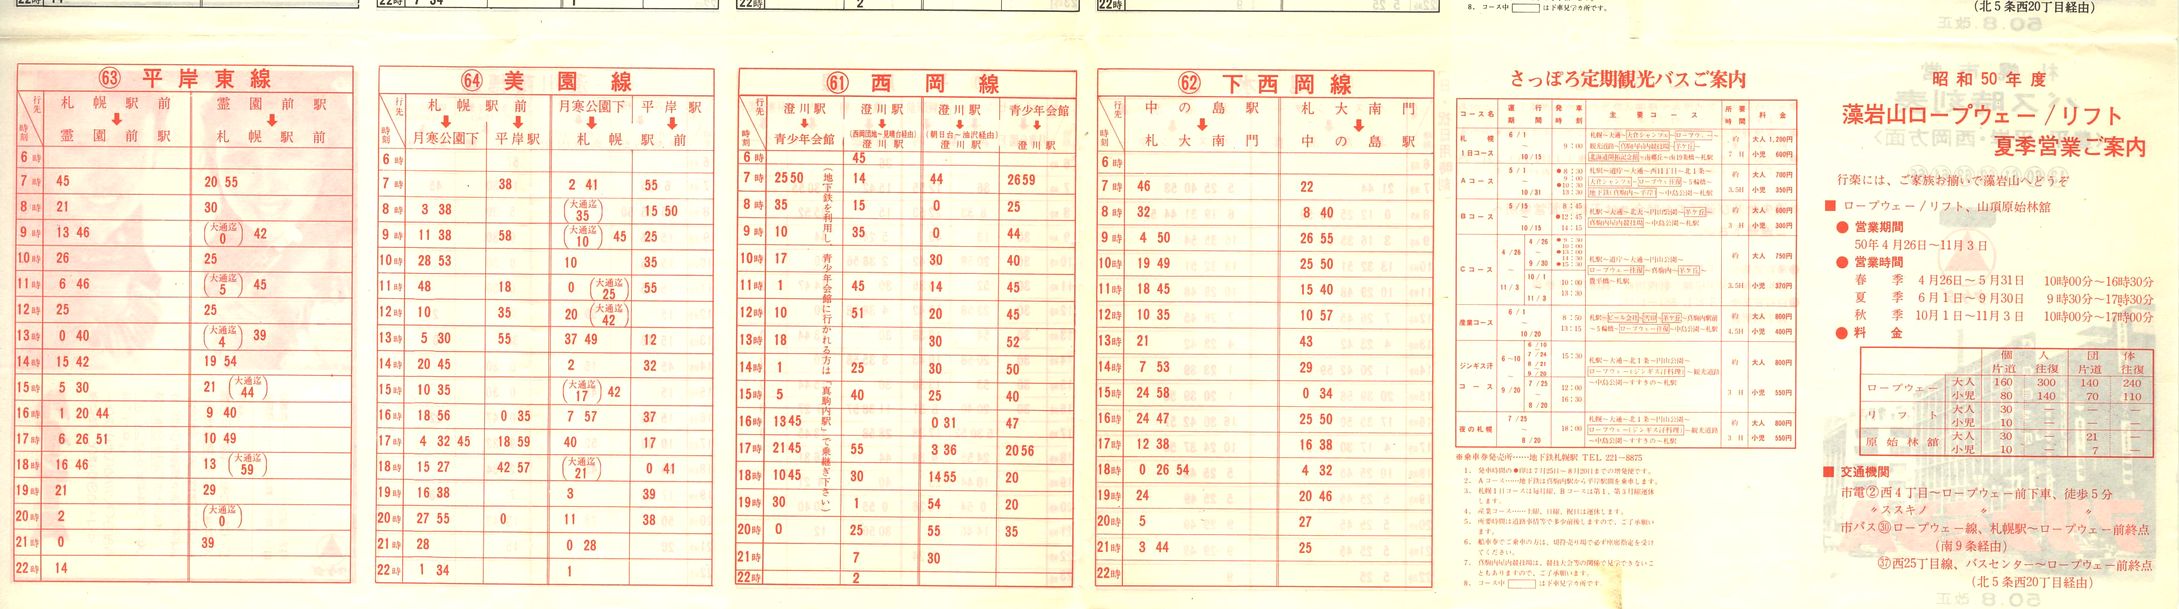 22時 14
22時 7 34 1
22時 2
22時
8. コース中 は下車見学カ所です。
(北5条西20丁目経由)
㊿+13 平岸東線
行先 札幌駅前 霊園前駅
時刻 霊園前駅 札幌駅前
6時
7時 45 20 55
8時 21 30
9時 13 46 (大通迄 0) 42
10時 26 25
11時 6 46 (大通迄 5) 45
12時 25 25
13時 0 40 (大通迄 4) 39
14時 15 42 19 54
15時 5 30 21 (大通迄 44)
16時 1 20 44 9 40
17時 6 26 51 10 49
18時 16 46 13 (大通迄 59)
19時 21 29
20時 2 (大通迄 0)
21時 0 39
22時 14
64 美園線
行先 札幌駅前 月寒公園下 平岸駅
時刻 月寒公園下 平岸駅 札幌駅前
6時
7時 38 2 41 55
8時 3 38 (大通迄 35) 15 50
9時 11 38 58 (大通迄 10) 45 25
10時 28 53 10 35
11時 48 18 0 (大通迄 25) 55
12時 10 35 20 (大通迄 42)
13時 5 30 55 37 49 12
14時 20 45 2 32
15時 10 35 (大通迄 17) 42
16時 18 56 0 35 7 57 37
17時 4 32 45 18 59 40 17
18時 15 27 42 57 (大通迄 21) 0 41
19時 16 38 3 39
20時 27 55 0 11 38
21時 28 0 28
22時 1 34 1
61 西岡線
行先 澄川駅 澄川駅 澄川駅 青少年会館
(西岡団地〜見晴台経由) (朝日台〜池沢経由)
時刻 青少年会館 澄川駅 澄川駅 澄川駅
(地下鉄を利用し、青少年会館に行かれる方は「真駒内駅」で乗継ぎ下さい)
6時 45
7時 25 50 14 44 26 59
8時 35 15 0 25
9時 10 35 0 44
10時 17 30 40
11時 1 45 14 45
12時 10 51 20 45
13時 18 30 52
14時 1 25 30 50
15時 5 40 25 40
16時 13 45 0 31 47
17時 21 45 55 3 36 20 56
18時 10 45 30 14 55 20
19時 30 1 54 20
20時 0 25 55 35
21時 7 30
22時 2
62 下西岡線
行先 中の島駅 札大南門
時刻 札大南門 中の島駅
6時
7時 46 22
8時 32 8 40
9時 4 50 26 55
10時 19 49 25 50
11時 18 45 15 40
12時 10 35 10 57
13時 21 43
14時 7 53 29
15時 24 58 0 34
16時 24 47 25 50
17時 12 38 16 38
18時 0 26 54 4 32
19時 24 20 46
20時 5 27
21時 3 44 25
22時
さっぽろ定期観光バスご案内
コース名 運行期間 発車時刻 主要コース 所要時間 料金
札幌1日コース 6/1〜10/15 9:00 約7H 大人1,200円 小児600円
Aコース 5/1〜10/31 約3.5H 大人700円 小児350円
Bコース 5/15〜10/15 8:45 12:45 14:15 約3H 大人600円 小児300円
Cコース 4/26〜11/3 約3.5H 大人750円 小児370円
産業コース 6/1〜10/20 8:50 13:15 約4.5H 大人800円 小児400円
ジンギス汗コース 6〜10〜9/20 15:30 12:00 16:30 約3H 大人800円 小児550円
夜の札幌 7/25〜8/20 18:00 約3H 大人800円 小児550円
※乗車券発売所……地下鉄札幌駅 TEL 221-8875
1. 発車時間の●印は7月25日〜8月20日までの増発便です。
2. Aコース……地下鉄は真駒内駅から平岸駅間を乗車します。
3. 札幌1日コースは毎月曜、Bコースは第1、第3月曜運休します。
4. 産業コース……土曜、日曜、祝日は運休します。
5. 所要時間は道路事情等で多少前後しますので、ご了承願います。
6. 船車券でご乗車の方は、切符売り場で必ず座席指定を受けてください。
7. 真駒内屋内競技場は、競技大会等の関係で見学できないこともありますので、ご了承願います。
8. コース中 は下車見学カ所です。
昭和50年度
藻岩山ロープウェー/リフト
夏季営業ご案内
行楽には、ご家族お揃いで藻岩山へどうぞ
■ ロープウェー/リフト、山頂原始林舘
● 営業期間
50年4月26日〜11月3日
● 営業時間
春季 4月26日〜5月31日 10時00分〜16時30分
夏季 6月1日〜9月30日 9時30分〜17時30分
秋季 10月1日〜11月3日 10時00分〜17時00分
● 料金
個人 団体
片道 往復 片道 往復
ロープウェー 大人 160 300 140 240
小児 80 140 70 110
リフト 大人 30 — — —
小児 10 — — —
原始林舘 大人 30 — 21 —
小児 10 — 7 —
■ 交通機関
市電②西4丁目〜ロープウェー前下車、徒歩5分
〃 ススキノ 〃 〃
市バス㉚ロープウェー線、札幌駅〜ロープウェー前終点
(南9条経由)
㊲西25丁目線、バスセンター〜ロープウェー前終点
(北5条西20丁目経由)